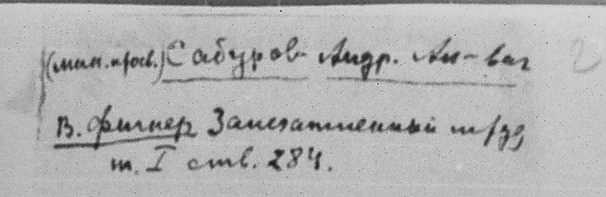 (мин. просв.) Сабуров Андр. Ал-вич 2
В. Фигнер Запечатленный труд
т. I стр. 284.